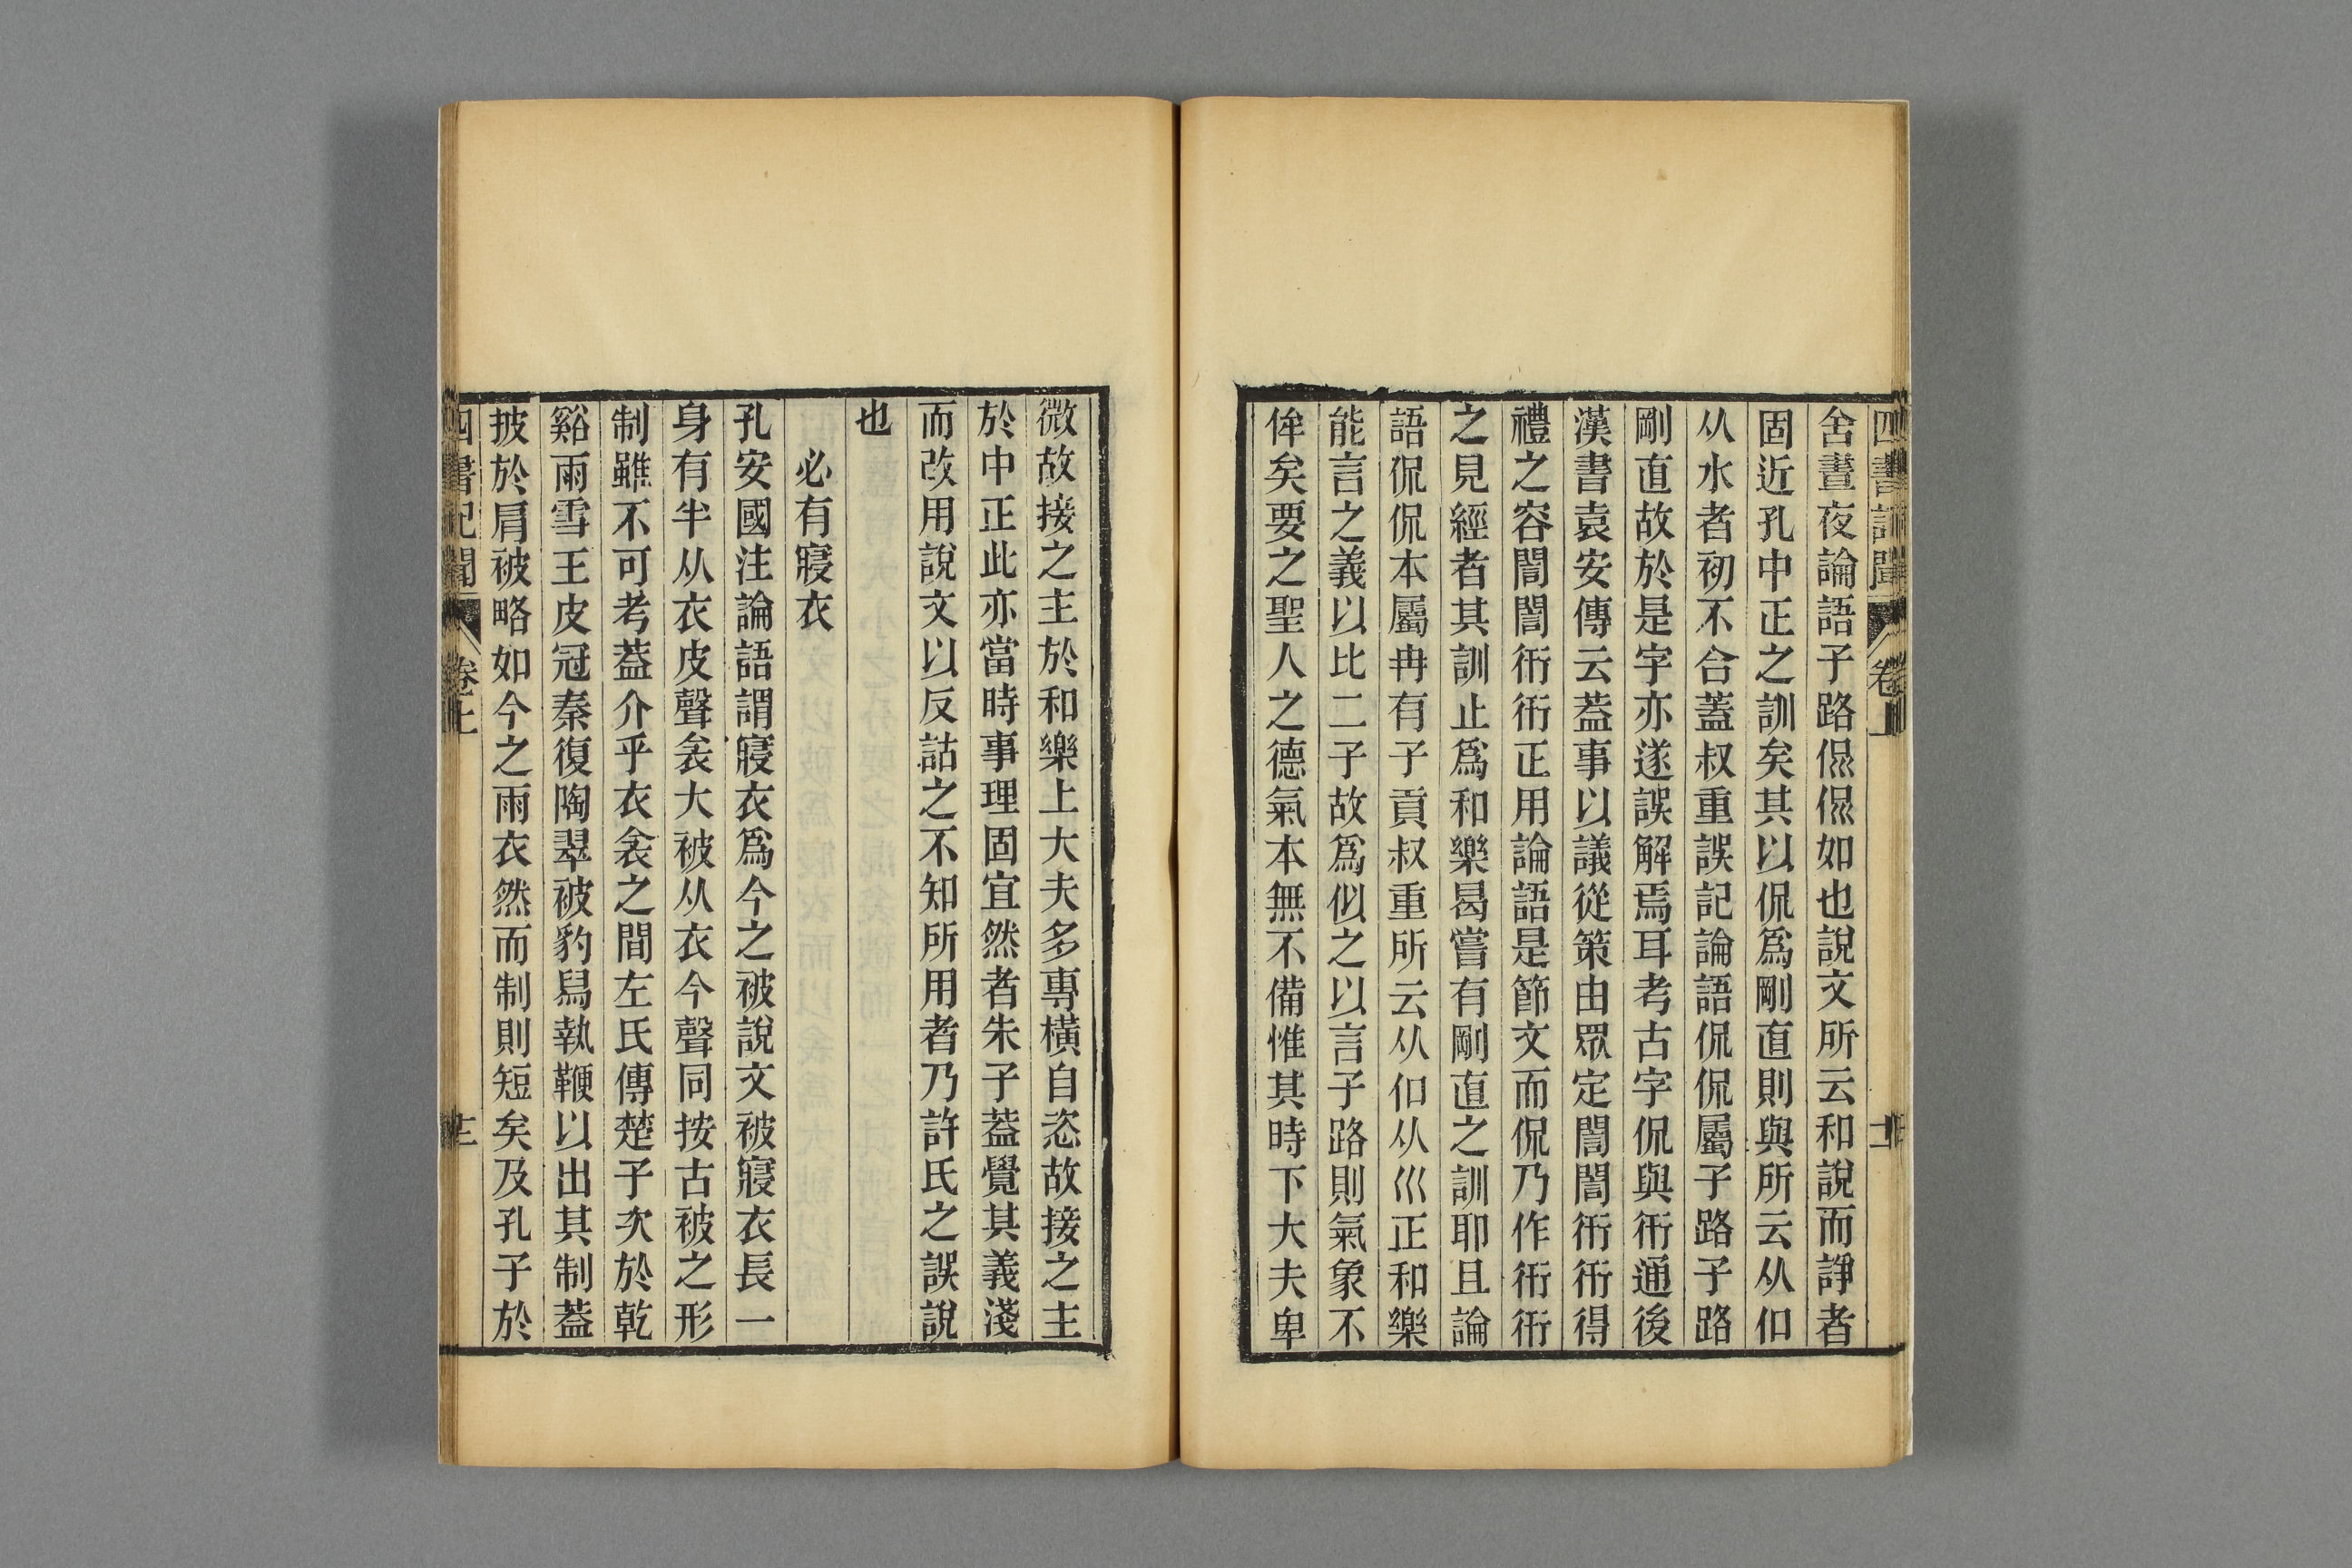 四書記聞 卷上
舍晝夜論語子路侃侃如也說文所云和說而諍者
固近孔中正之訓矣其以侃爲剛直則與所云从㐰
从水者初不合蓋叔重誤記論語侃侃屬子路子路
剛直故於是字亦遂誤解焉耳考古字侃與衎通後
漢書袁安傳云蓋事以議從策由眾定誾誾衎衎得
禮之容誾誾衎衎正用論語是節文而侃乃作衎衎
之見經者其訓止爲和樂曷嘗有剛直之訓耶且論
語侃侃本屬冉有子貢叔重所云从㐰从巛正和樂
能言之義以比二子故爲似之以言子路則氣象不
侔矣要之聖人之德氣本無不備惟其時下大夫卑
微故接之主於和樂上大夫多專橫自恣故接之主
於中正此亦當時事理固宜然者朱子蓋覺其義淺
而改用說文以反詁之不知所用者乃許氏之誤說
也
必有寢衣
孔安國注論語謂寢衣爲今之被說文被寢衣長一
身有半从衣皮聲衾大被从衣今聲同按古被之形
制雖不可考蓋介乎衣衾之間左氏傳楚子次於乾
谿雨雪王皮冠秦復陶翠被豹舄執鞭以出其制蓋
披於肩被略如今之雨衣然而制則短矣及孔子於
四書記聞 卷上 十三